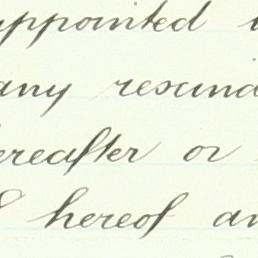 appointed
any rescind
hereafter or
hereof an